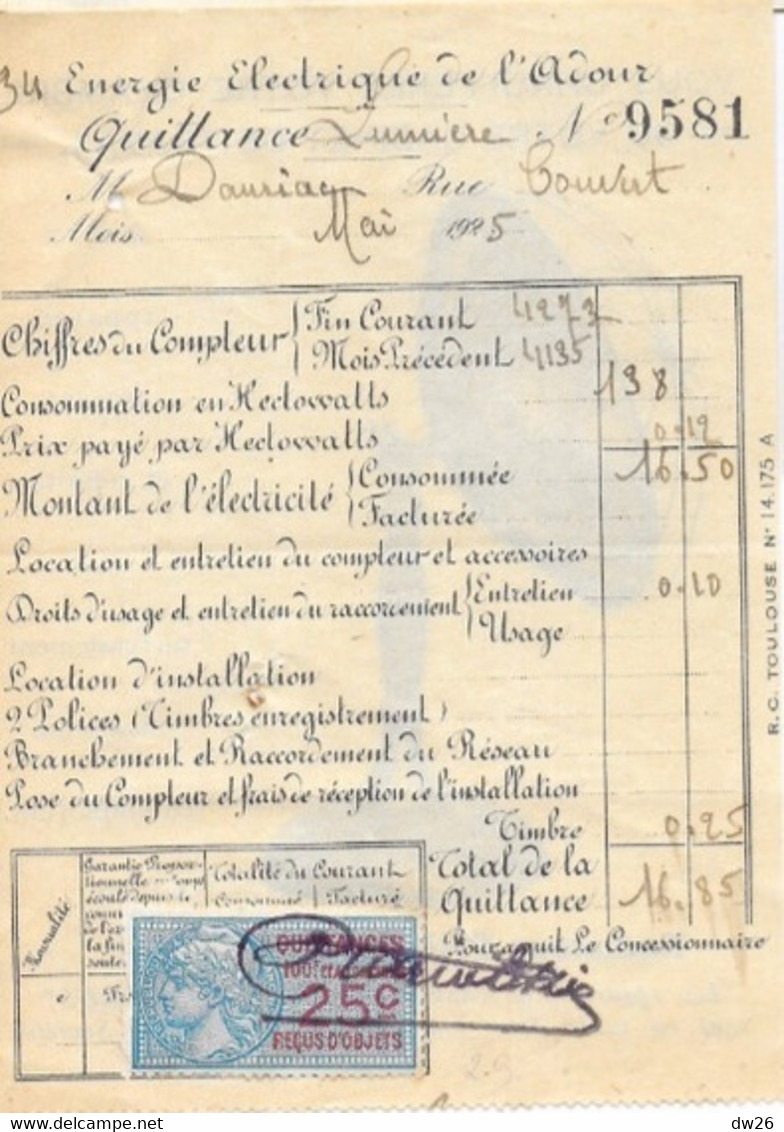 34 Energie Electrique de l'Adour
Quittance Lumière N° 9581
M Dauriac Rue Couvert
Mois Mai 1925
Chiffres du Compteur { Fin Courant 4273
Mois Précédent 4135
Consommation en Hectowatts 138
Prix payé par Hectowatts 0.12
Montant de l'électricité { Consommée 16.50
Facturée
Location et entretien du compteur et accessoires
Droits d'usage et entretien du raccordement { Entretien 0.10
Usage
Location d'installation
2 Polices (Timbres enregistrement)
Branchement et Raccordement du Réseau
Pose du Compteur et frais de réception de l'installation
Timbre 0.25
Total de la
Quittance 16.85
Pour acquit Le Concessionnaire
Mensualité
Garantie Propor-
tionnelle
écoulé depuis
Totalité du Courant
Consommé Facturé
QUITTANCES
25c
REÇUS D'OBJETS
R.C. TOULOUSE N° 14.175 A
dw26